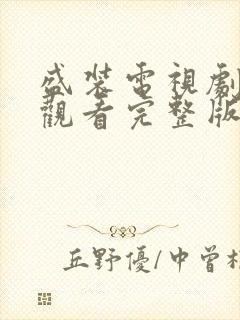 盛裝電視劇
觀看完整版
丘野優/中曾根